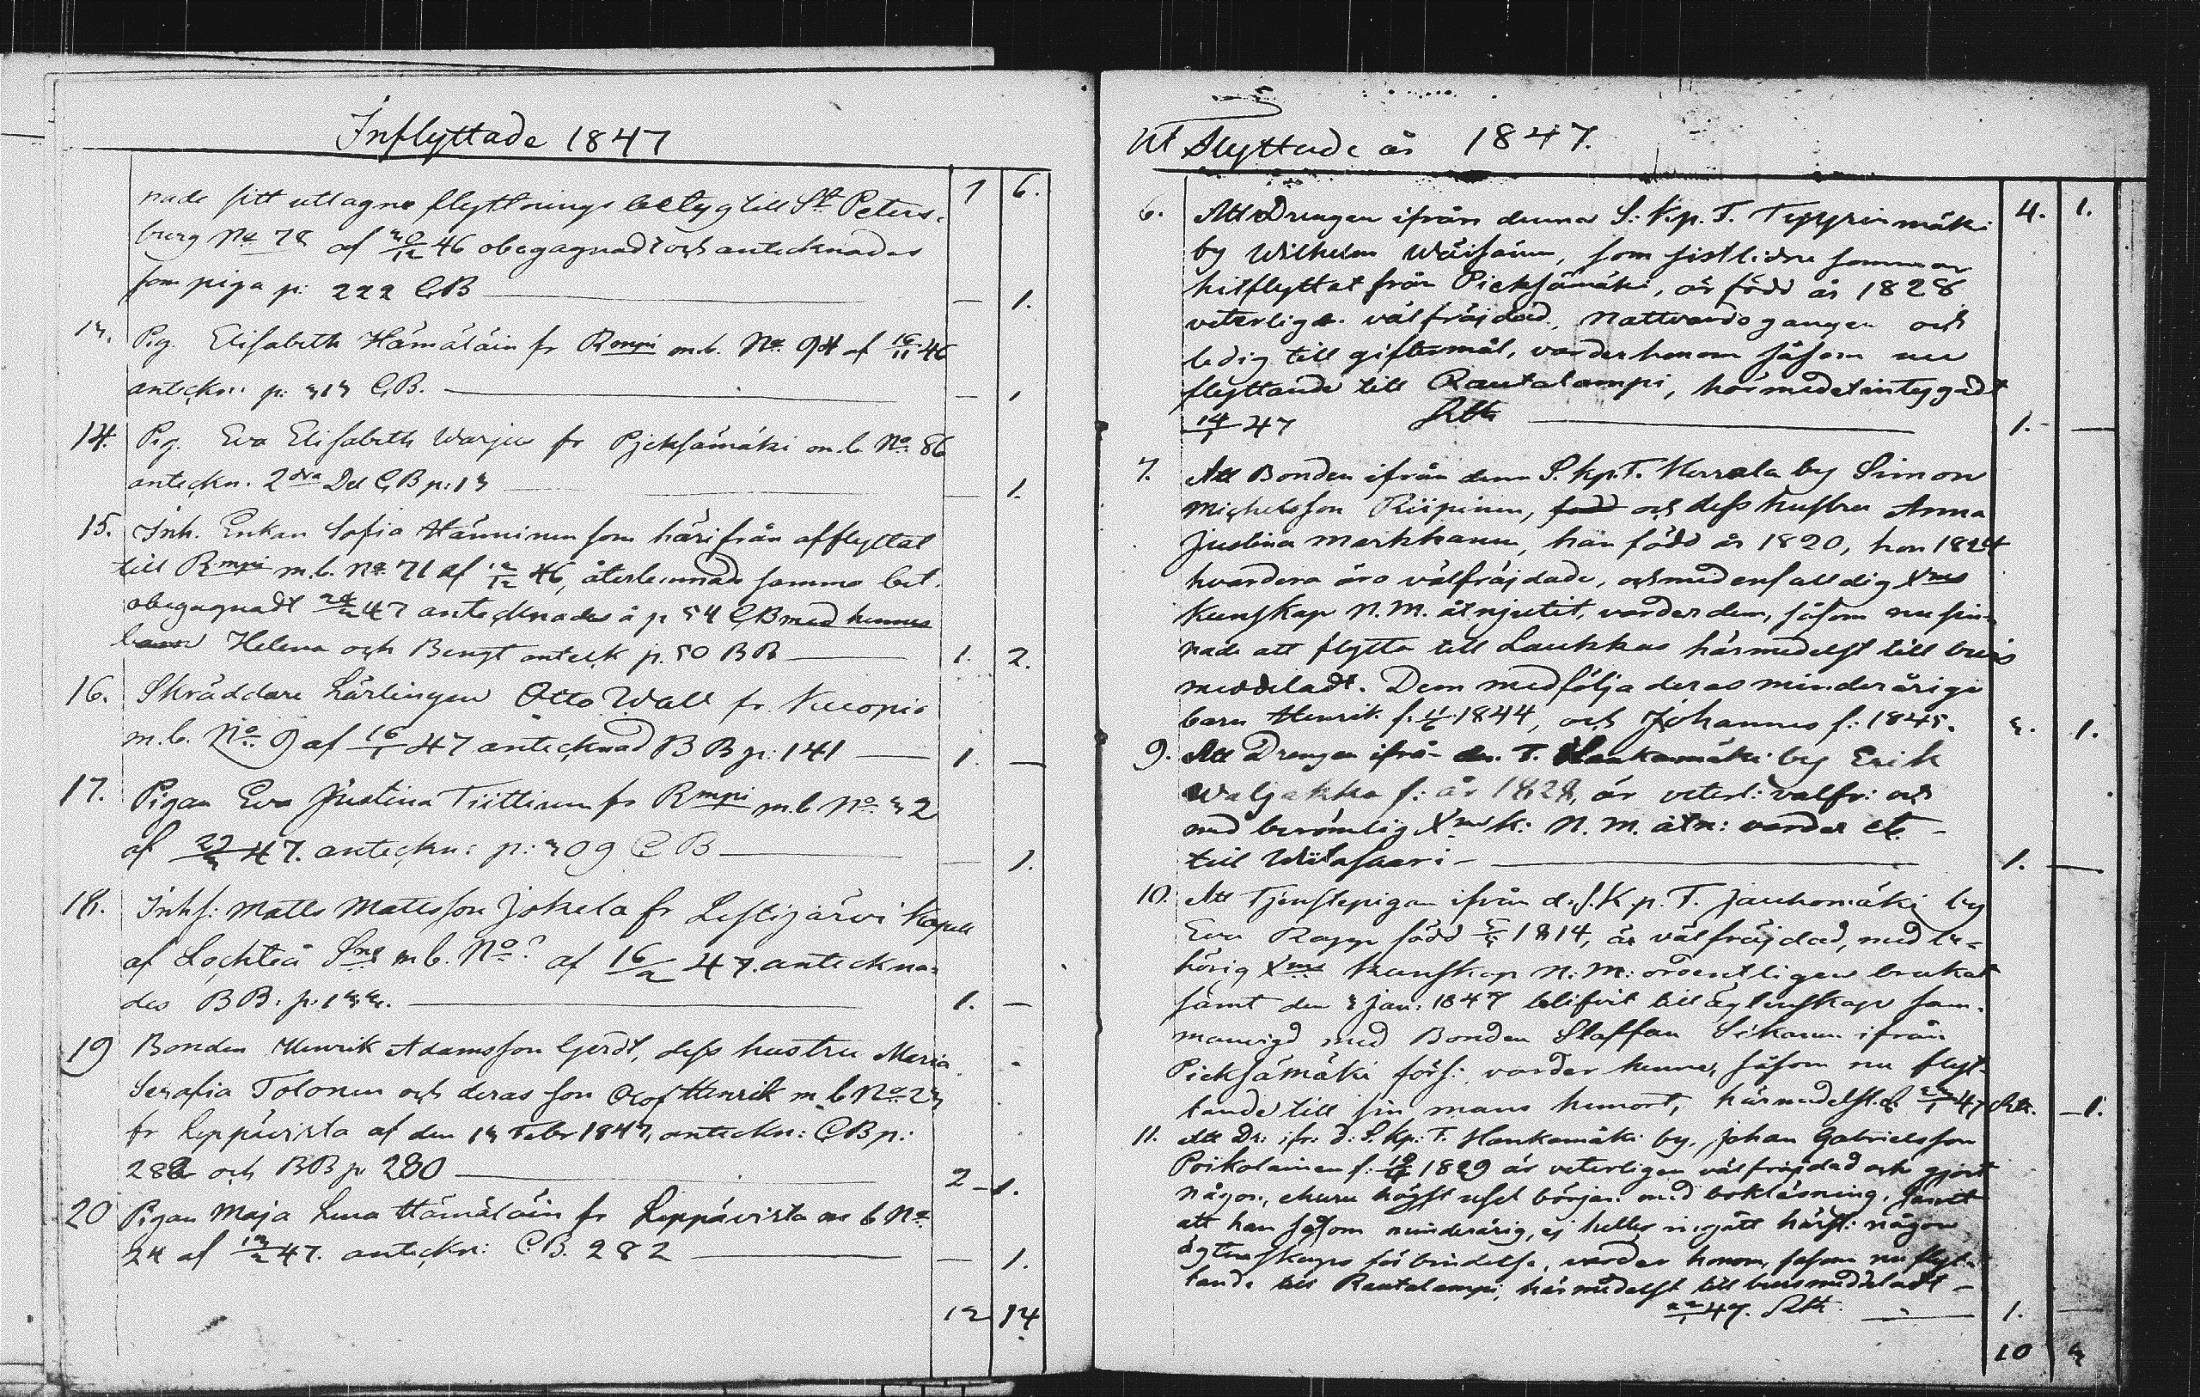 Inflyttade 1847
nade sitt uttagne flyttnings betyg till St Peters- 1 6.
burg No 78 af 30/12 46 obegagnadt och antecknades
som piga p: 222 CB — 1.
13. Pig. Elisabeth Hämäläin fr Rmpi m.b. No 94 af 16/11 46
anteckn: p: 313 C.B. — 1
14. Pig. Eva Elisabeth Warju fr Pjeksämäki m.b. No 86
anteckn. 2dra Del CB p: 13 — 1.
15. Inh. Enkan Sofia Hänninen som härifrån afflyttat
till Rmpi m.b. No 71 af 12/12 46, återlemnade samma bet.
obegagnadt 24/2 47 antecknades å p 54 CB med hennes
barn Helena och Bengt anteck p. 50 BB — 1. 2.
16. Skräddare Lärlingen Otto Wall fr. Kuopio
m.b. No 9 af 16/1 47 antecknad BB p: 141 — 1. —
17. Pigan Eva Justina Tiittinen fr Rmpi m.b No 32
af 22/3 47. anteckn: p: 309 CB — 1.
18. Inhs: Matts Mattsson Jokela fr Lestijärvi Kapell
af Lochteå Sns m b. No ? af 16/2 47. anteckna-
des BB: p: 133. — 1. —
19 Bonden Henrik Adamsson Gerdt, dess hustru Maria
Serafia Tolonen och deras son Olof Henrik m.b No 23
fr Leppävirta af den 13 Febr 1847, anteckn: CB p:
282 och BB p 280 — 2 — 1.
20 Pigan Maja Lena Hämäläin fr Leppävirta m b No
24 af 13/2 47. anteckn: C.B. 282 — 1.
12 14
Ut Flyttade år 1847.
6. Att Drengen ifrån denna S: Kp. T. Tyyrinmäki 4. 1.
by Wilhelm Wäisäinen, som sistlidne sommar
hitflyttat från Pieksämäki, är född år 1828
veterligen välfräjdad, Nattvardsgangen och
ledig till giftermål, varder honom såsom nu
flyttande till Rautalampi, härmedelst intygadt
14/1 47 — 1. —
7. Att Bonden ifrån denna S. Kp. T. Kerrala by Simon
Michelsson Riipinen, född och dess hustru Anna
Justina Markkanen, han född år 1820, hon 1824
hvardera äro välfräjdade, och med enfalldig Xms
Kunskap N.M. åtnjutit, varder dem, såsom nu sin-
nade att flytta till Laukkas härmedelst till bevis
meddeladt. Dem medfölja deras minderårige
barn Henrik f: 1844, och Johannes f: 1845. 3. 1.
9. Att Drengen ifrån den. T. Hankamäki by Erik
Waljakka f: år 1828, är veterl: välfr: och
med berömlig Xms k: N.M. åtn: varder etc. —
till Wiitasaari — 1. —
10. Att Tjenstepigan ifrån d. S. K.p. T. Jauhomäki by
Eva Rapp född 1814, är välfräjdad, med be-
hörig Xms kunskap N: M: ordentligen brukat
samt den 3 Jan: 1847 blifvit till äktenskap sam-
manvigd med Bonden Staffan Sikanen ifrån
Pieksämäki förs: varder henne, såsom nu flyt-
tande till sin mans hemort, härmedelst — 1.
11. Att Dr: ifr: d: S. Kp: T. Hankamäki by, Johan Gabrielsson
Poikolainen f: 1829 är veterligen välfräjdad och gjort
någon, ehuru högst usel början med bokläsning, samt
att han såsom minderårig, ej heller ingått härst: någon
ägtenskaps förbindelse, varder honom, såsom nu flyt-
tande till Rautalampi, härmedelst till bevis meddeladt —
22/1 47. — 1. —
10 3